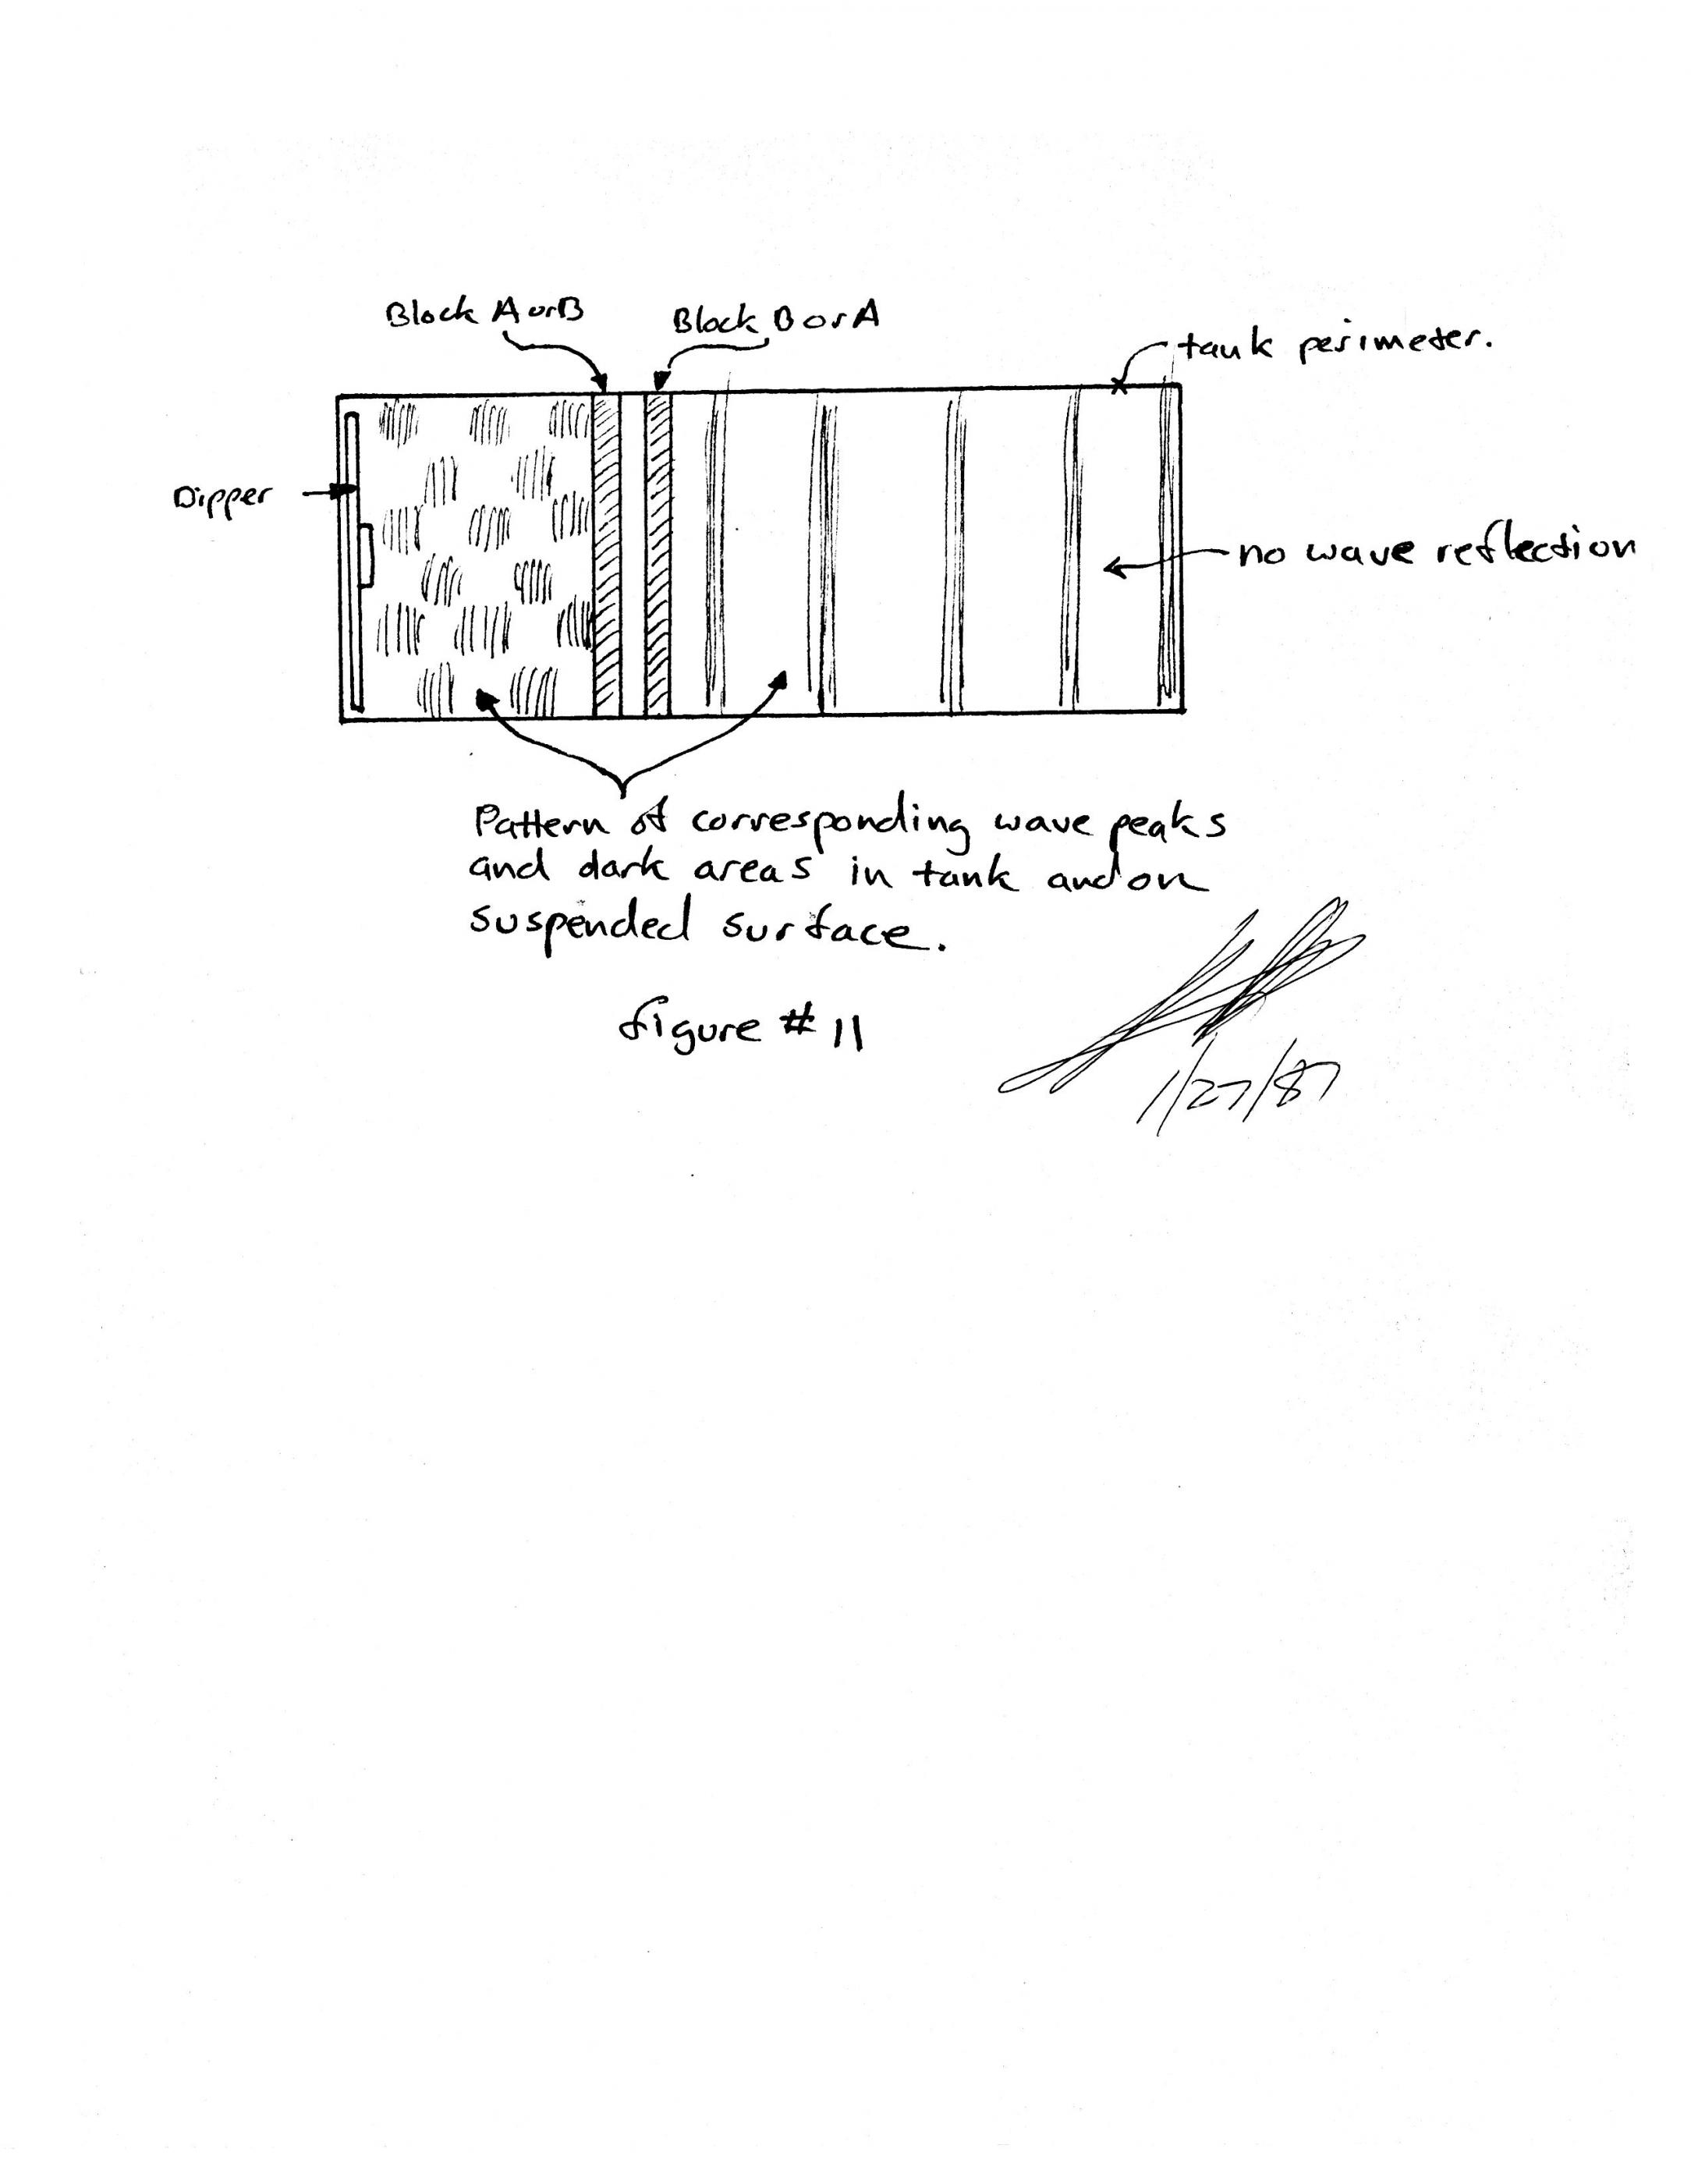 Block A or B
Block B or A
tank perimeter.
Dipper
no wave reflection
Pattern of corresponding wave peaks
and dark areas in tank and on
suspended surface.
figure # 11
1/27/87